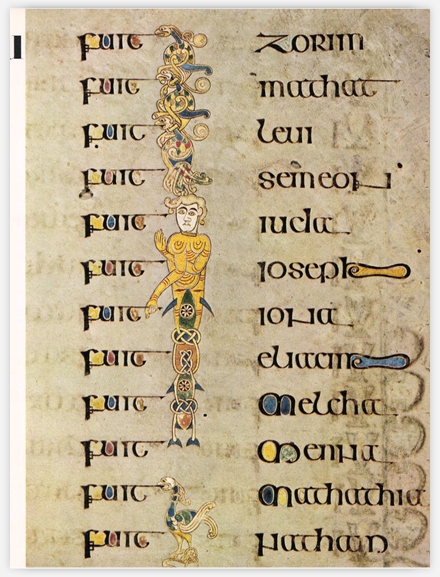 fuit zorim
fuit mathat
fuit leui
fuit semeon
fuit iuda
fuit ioseph
fuit iona
fuit eliacim
fuit melcha
fuit menna
fuit mathathia
fuit nathan